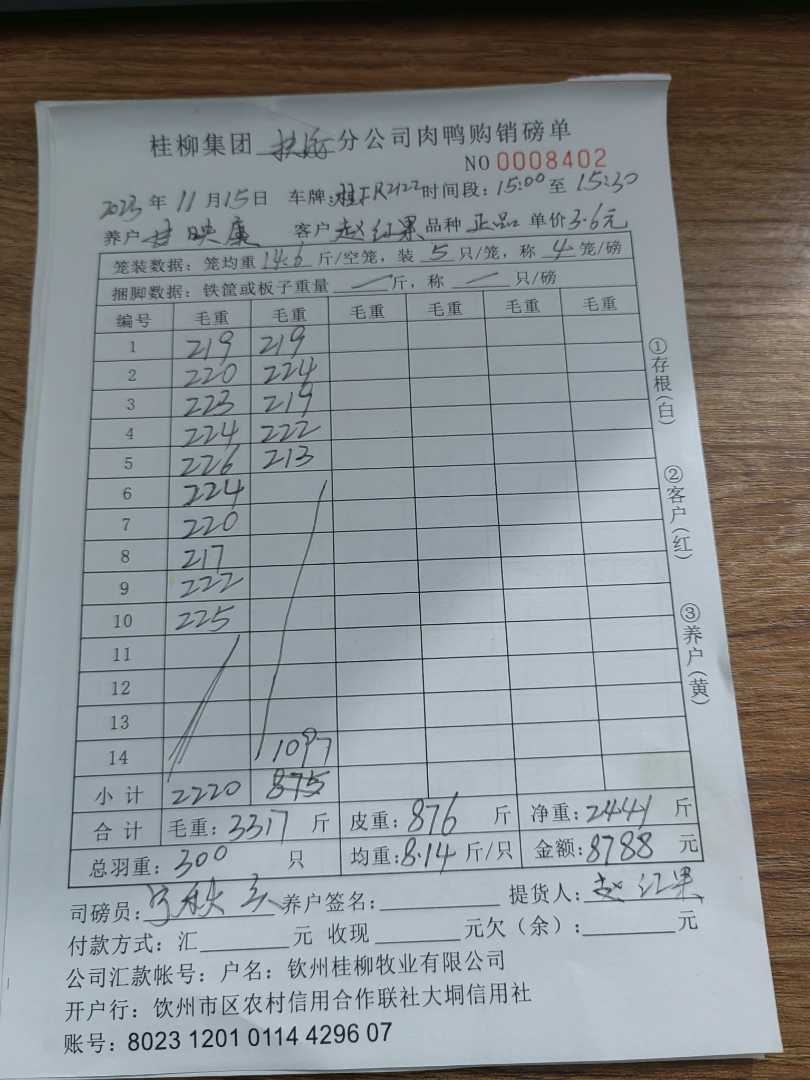 桂柳集团 分公司肉鸭购销磅单
NO 0008402
2023年11月15日 车牌: R2122 时间段: 15:00至15:30
养户 甘映康 客户 赵红果 品种 正品 单价3.6元
笼装数据: 笼均重14.6斤/空笼, 装5只/笼, 称4笼/磅
捆脚数据: 铁筐或板子重量 斤, 称 只/磅
编号 毛重 毛重 毛重 毛重 毛重 毛重
1 219 219
2 220 224
3 223 219
4 224 222
5 226 213
6 224
7 220
8 217
9 222
10 225
11
12
13
14 1097
小计 2220 875
合计 毛重: 3317斤 皮重: 876斤 净重: 2441斤
总羽重: 300只 均重: 8.14斤/只 金额: 8788元
司磅员: 养户签名: 提货人: 赵红果
付款方式: 汇 元 收现 元欠(余): 元
公司汇款帐号: 户名: 钦州桂柳牧业有限公司
开户行: 钦州市区农村信用合作联社大垌信用社
账号: 8023 1201 0114 4296 07
①存根(白)
②客户(红)
③养户(黄)